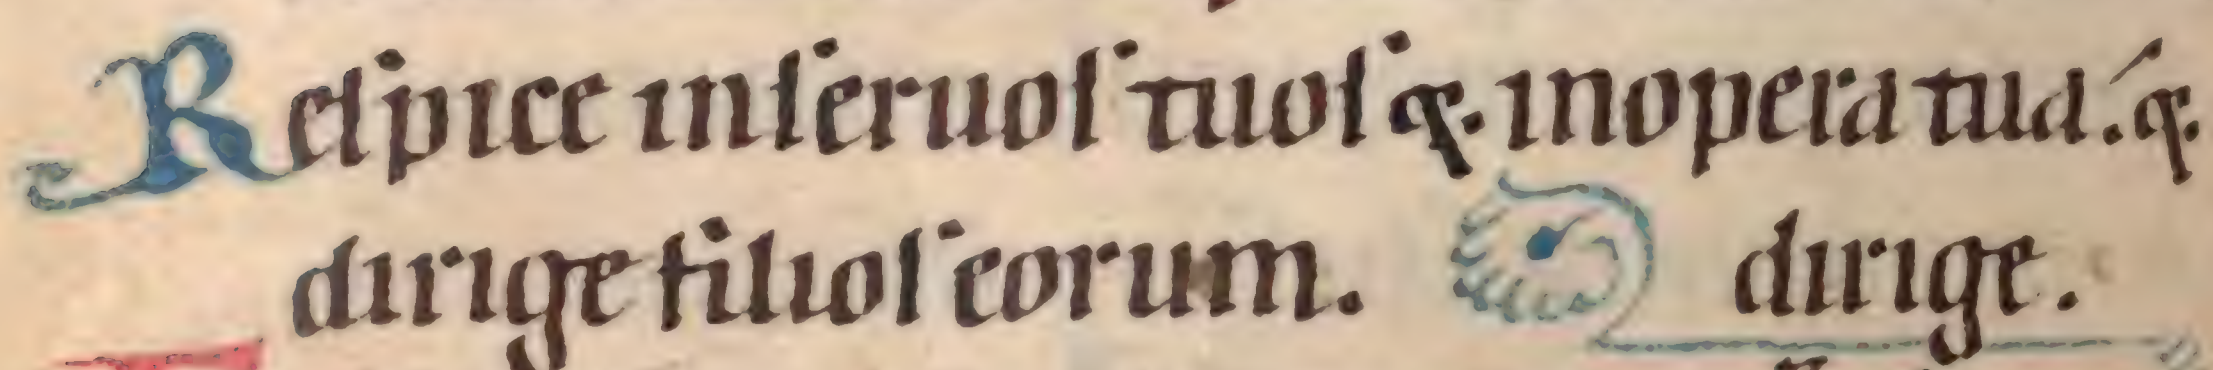 Reſpice inſeruoſ tuoſ q̅. inopera tua.́ q̅.
dirige filioſ eorum. dirige.